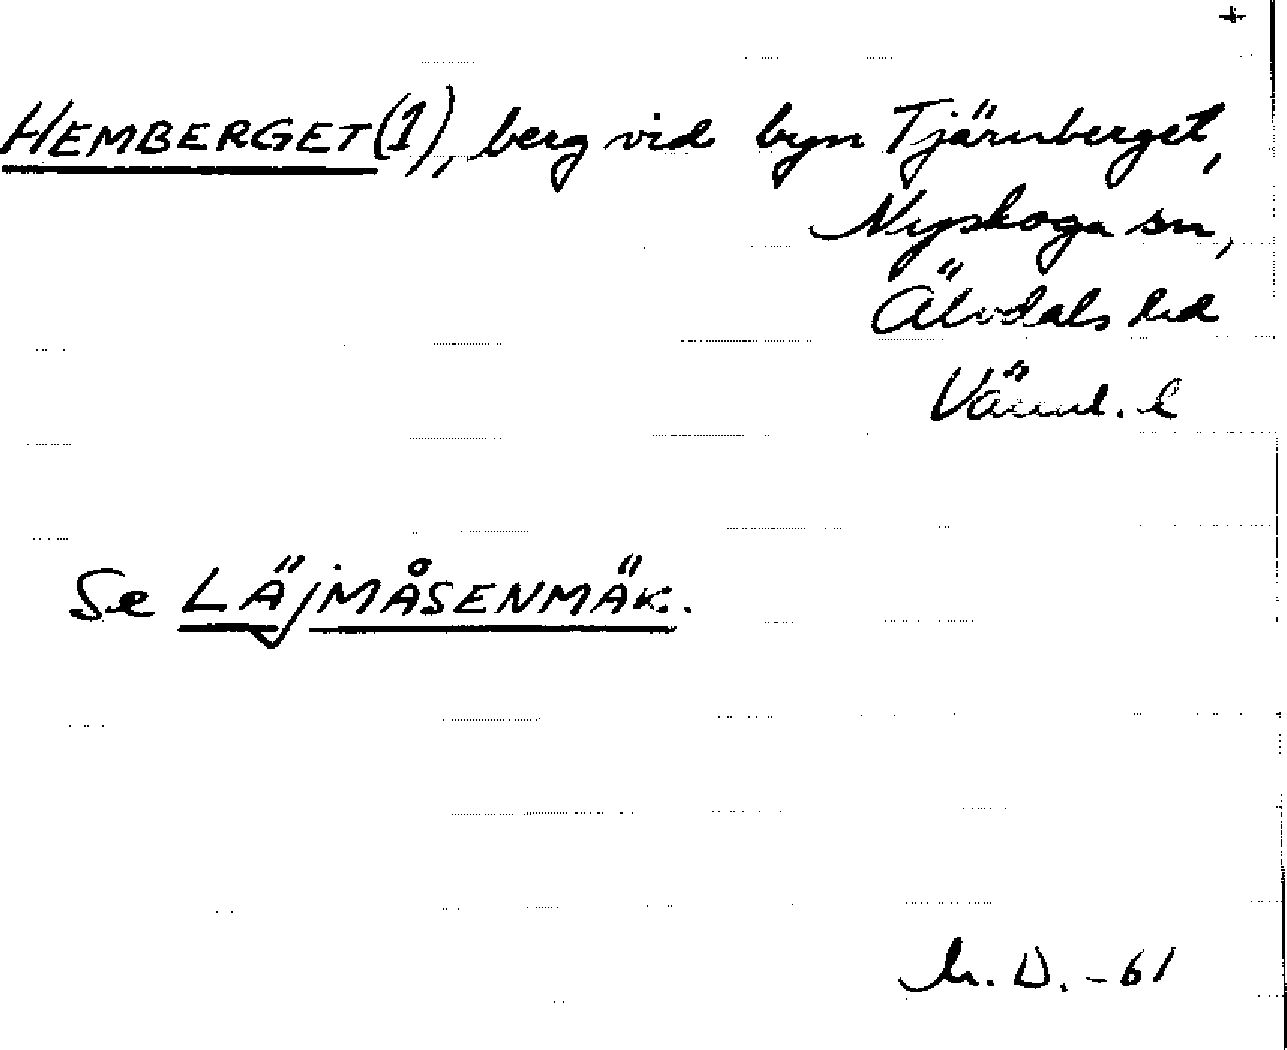 +
HEMBERGET (1), berg vid byn Tjärnberget,
Nyskoga sn,
Älvdals hd
Värml. l
Se LÄJMÅSENMÄK.
M. D. -61